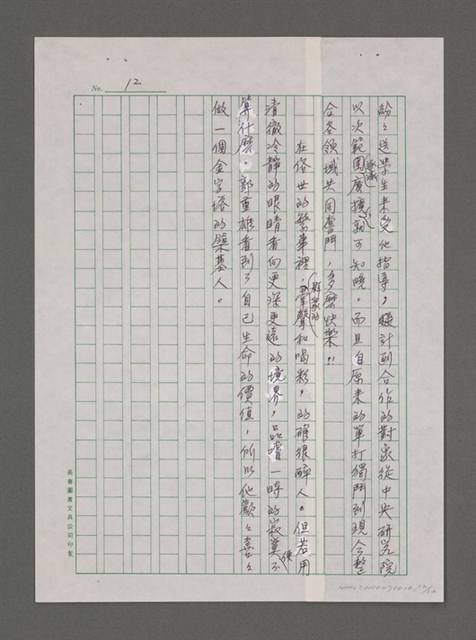 No. 12
紛々送學生來受他指導,總計到合作的對象從中央研究院
以次範圍逐漸廣擴到不可知曉。而且自原來的單打獨鬥到現今整
合各領域共同奮鬥,多麼快樂!!
在俗世的繁華裡,群眾的掌聲和喝彩,的確很醉人。但若用
清澈冷靜的眼睛看向更深更遠的境界,品嚐一時的寂寞不
算什麼。郭重雄看到了自己生命的價值,所以他歡々喜々
做一個金字塔的築基人。
長春圖書文具公司印製